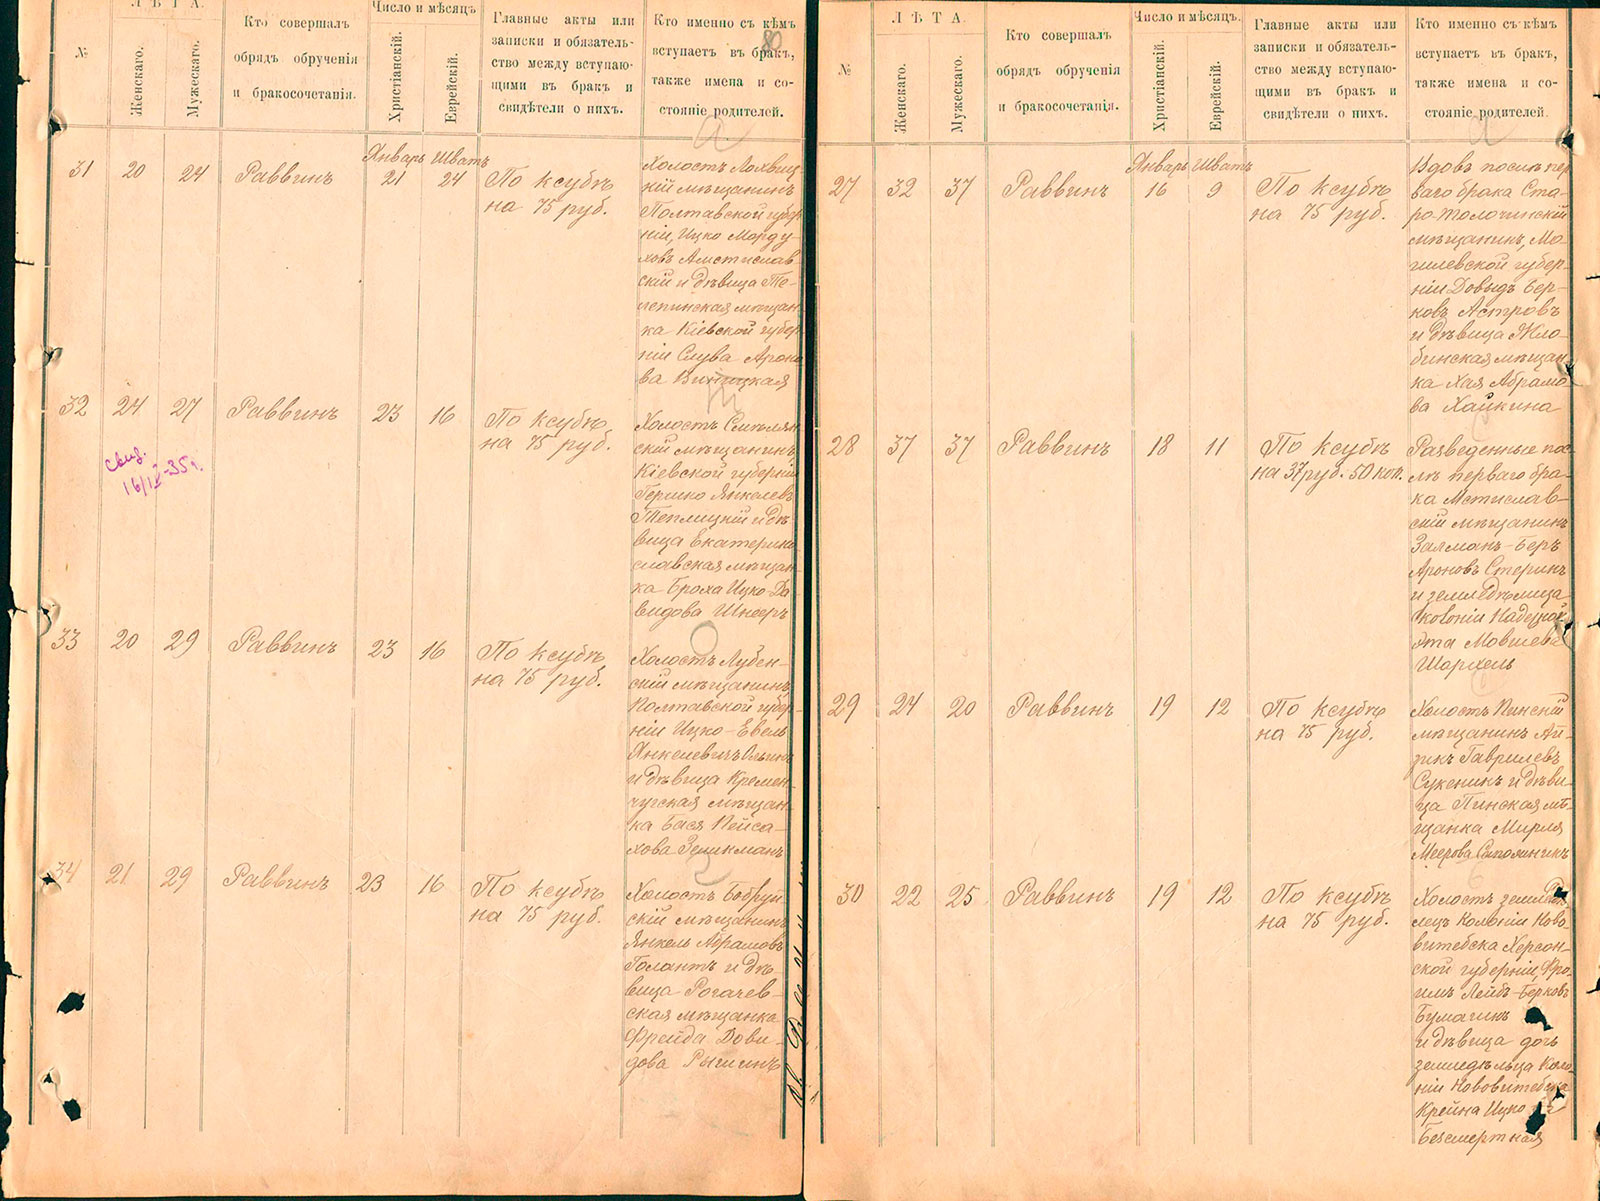 №
ЛѢТА.
Женскаго.
Мужескаго.
Кто совершалъ
обрядъ обрученія
и бракосочетанія.
Число и мѣсяцъ
Христіанскій.
Еврейскій.
Главные акты или
записки и обязатель-
ство между вступаю-
щими въ бракъ и
свидѣтели о нихъ.
Кто именно съ кѣмъ
вступаетъ въ бракъ,
также имена и со-
стояніе родителей.
80
Январь Шватъ
31 20 24 Раввинъ 21 24 По ксубѣ
на 75 руб.
Холостъ Лохвиц-
кій мѣщанинъ
Полтавской губер-
ніи, Ицко Морду-
ховъ Амстислав-
скій и дѣвица Те-
лепинская мѣщан-
ка Кіевской губер-
ніи Слува Ароно-
ва Виницкая
32 24 27 Раввинъ 23 16 По ксубѣ
на 75 руб.
свид.
16/IX-35г.
Холостъ Смѣлян-
скій мѣщанинъ
Кіевской губерніи
Гершко Янкелевъ
Теплицкій и дѣ-
вица Екатерино-
славская мѣщан-
ка Броха Ицко-Да-
видова Шнееръ
33 20 29 Раввинъ 23 16 По ксубѣ
на 75 руб.
Холостъ Лубен-
скій мѣщанинъ
Полтавской губер-
ніи Ицко-Евель
Янкелевичъ
и дѣвица Кремен-
чугская мѣщан-
ка Бася Пейса-
хова Зеликманъ
34 21 29 Раввинъ 23 16 По ксубѣ
на 75 руб.
Холостъ Бобруй-
скій мѣщанинъ
Янкель Абрамовъ
Голантъ и дѣ-
вица Рогачев-
ская мѣщанка
Фрейда Дови-
дова Рышинъ
№
ЛѢТА.
Женскаго.
Мужескаго.
Кто совершалъ
обрядъ обрученія
и бракосочетанія.
Число и мѣсяцъ.
Христіанскій.
Еврейскій.
Главные акты или
записки и обязатель-
ство между вступаю-
щими въ бракъ и
свидѣтели о нихъ.
Кто именно съ кѣмъ
вступаетъ въ бракъ,
также имена и со-
стояніе родителей.
Январь Шватъ
27 32 37 Раввинъ 16 9 По ксубѣ
на 75 руб.
Вдовъ послѣ пер-
ваго брака Ста-
ро-Толочинскій
мѣщанинъ, Мо-
гилевской губер-
ніи Довыдъ Бер-
ковъ Астровъ
и дѣвица Жло-
бинская мѣщан-
ка Хая Абрамо-
ва Хайкина
28 37 37 Раввинъ 18 11 По ксубѣ
на 37 руб. 50 коп.
Разведенные пос-
лѣ перваго бра-
ка Мстислав-
скій мѣщанинъ
Залманъ-Беръ
Ароновъ Стеринъ
и земледѣлица
колоніи Надежной
Эта Мовшева
Шархель
29 24 20 Раввинъ 19 12 По ксубѣ
на 75 руб.
Холостъ Пинскій
мѣщанинъ Ай-
зикъ Гавриловъ
Сукенникъ и дѣви-
ца Пинская мѣ-
щанка Мирля
Меерова
30 22 25 Раввинъ 19 12 По ксубѣ
на 75 руб.
Холостъ землѣдѣ-
лецъ Колоніи Ново-
витебска Херсон-
ской губерніи, Фро-
имъ Лейбъ-Берковъ
Бумагинъ
и дѣвица дочь
земледѣльца Коло-
ніи Нововитебска
Крейна Ицко
Безсмертная